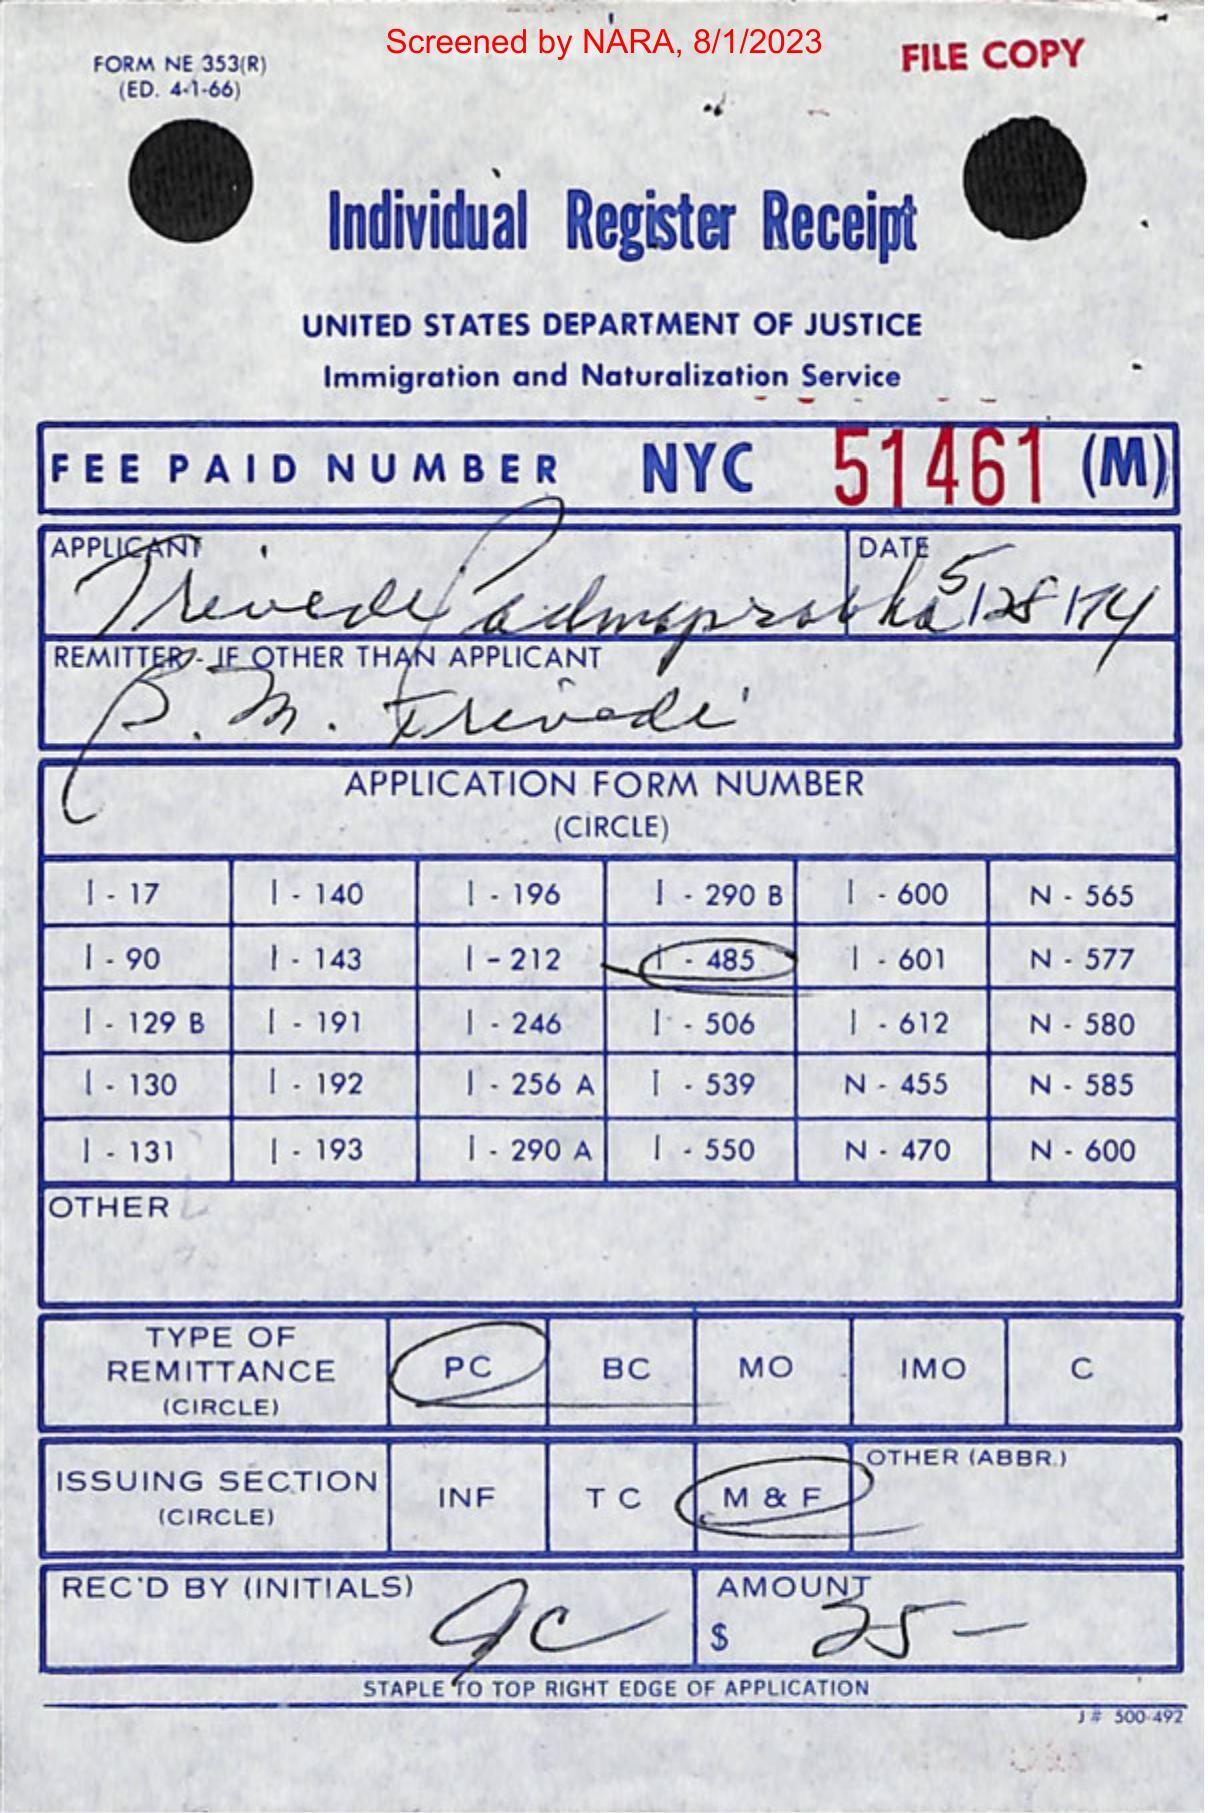 Screened by NARA, 8/1/2023
FORM NE 353(R)
(ED. 4-1-66)
FILE COPY
Individual Register Receipt
UNITED STATES DEPARTMENT OF JUSTICE
Immigration and Naturalization Service
FEE PAID NUMBER NYC 51461 (M)
APPLICANT DATE
Trivedi Padmaprabha 5/28/74
REMITTER - IF OTHER THAN APPLICANT
B. M. Trivedi
APPLICATION FORM NUMBER
(CIRCLE)
I - 17 I - 140 I - 196 I - 290 B I - 600 N - 565
I - 90 I - 143 I - 212 I - 485 I - 601 N - 577
I - 129 B I - 191 I - 246 I - 506 I - 612 N - 580
I - 130 I - 192 I - 256 A I - 539 N - 455 N - 585
I - 131 I - 193 I - 290 A I - 550 N - 470 N - 600
OTHER
TYPE OF
REMITTANCE PC BC MO IMO C
(CIRCLE)
OTHER (ABBR.)
ISSUING SECTION INF T C M & F
(CIRCLE)
REC'D BY (INITIALS) AMOUNT
JC $ 25 -
STAPLE TO TOP RIGHT EDGE OF APPLICATION
J # 500-492